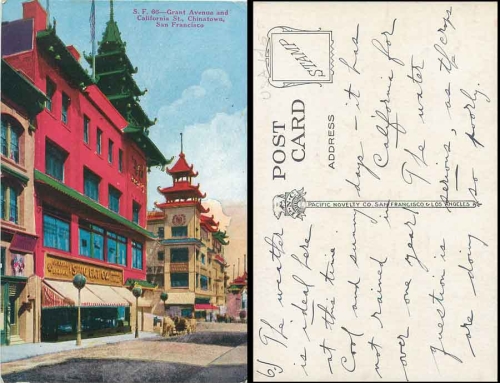 S. F. 66—Grant Avenue and
California St., Chinatown,
San Francisco
SING FAT CO.
POST
CARD
ADDRESS
STAMP
PACIFIC NOVELTY CO., SAN FRANCISCO & LOS ANGELES
6) The weather
is ideal here
at this time
Cool and sunny days - it has
not rained in California for
over one year! The water
question is serious, as the crops
are doing so poorly.